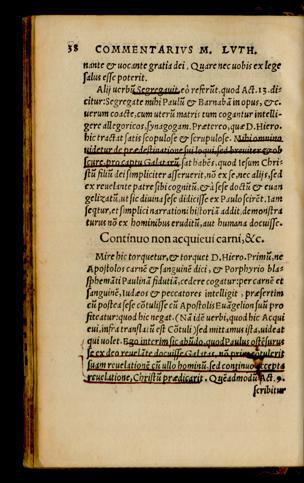 38 COMMENTARIVS M. LVTH.
nante & uocante gratia dei. Quare nec uobis ex lege
salus esse poterit.
Alij uerbũ Segregauit, eò referũt, quod Act. 13. di
citur: Segregate mihi Paulũ & Barnabã in opus, &c.
uerum coacte, cum uterũ matris tum cogantur intelli-
gere allegoricos, synagogam. Prætereo, quæ D. Hiero.
hic tractat satis scopulose & scrupulose. Mihi omnino
uidetur de prædestinatione sui loqui, sed breuiter & ob
scure, pro captu Galatarũ, sat habẽs, quod Iesum Chri-
stũ filiũ dei simpliciter asseruerit, nõ ex se, nec alijs, sed
ex reuelante patre sibi cognitũ, & à sese doctũ & euan
gelizatũ, ut sic diuina sese didicisse ex Paulo scirẽt. Iam
sequitur, et simplici narrationi historiã addit, demonstra
turus nõ ex hominibus eruditũ, aut humana docuisse.
Continuo non acquieui carni, &c.
Mire hic torquetur, & torquet D. Hiero. Primũ, ne
Apostolos carnẽ & sanguinẽ dici, & Porphyrio bla-
sphemãti Paulinã fiduciã, cedere cogatur: per carnẽ et
sanguinẽ, Iudæos & peccatores intelligit, præsertim
cũ postea sese cõtulisse cũ Apostolis Euãgelion suũ pro
fiteatur: quod hic negat. (Nã idẽ uerbi, quod hic Acqui
eui, infra translatũ est Cõtuli) sed mittamus ista, uideat
qui uolet. Ego interim sic abũdo, quod Paulus ostẽsurus
se ex deo reuelãte docuisse Galatas, nõ primũ cõtulerit
suam reuelationẽ cũ ullo hominũ, sed continuo accepta
reuelatione, Christũ prædicarit. Quẽadmodũ Act. 9.
scribitur